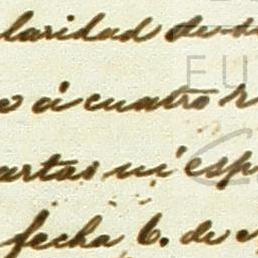 laridad de
o á cuatro
artas ni esp
fecha 6. de